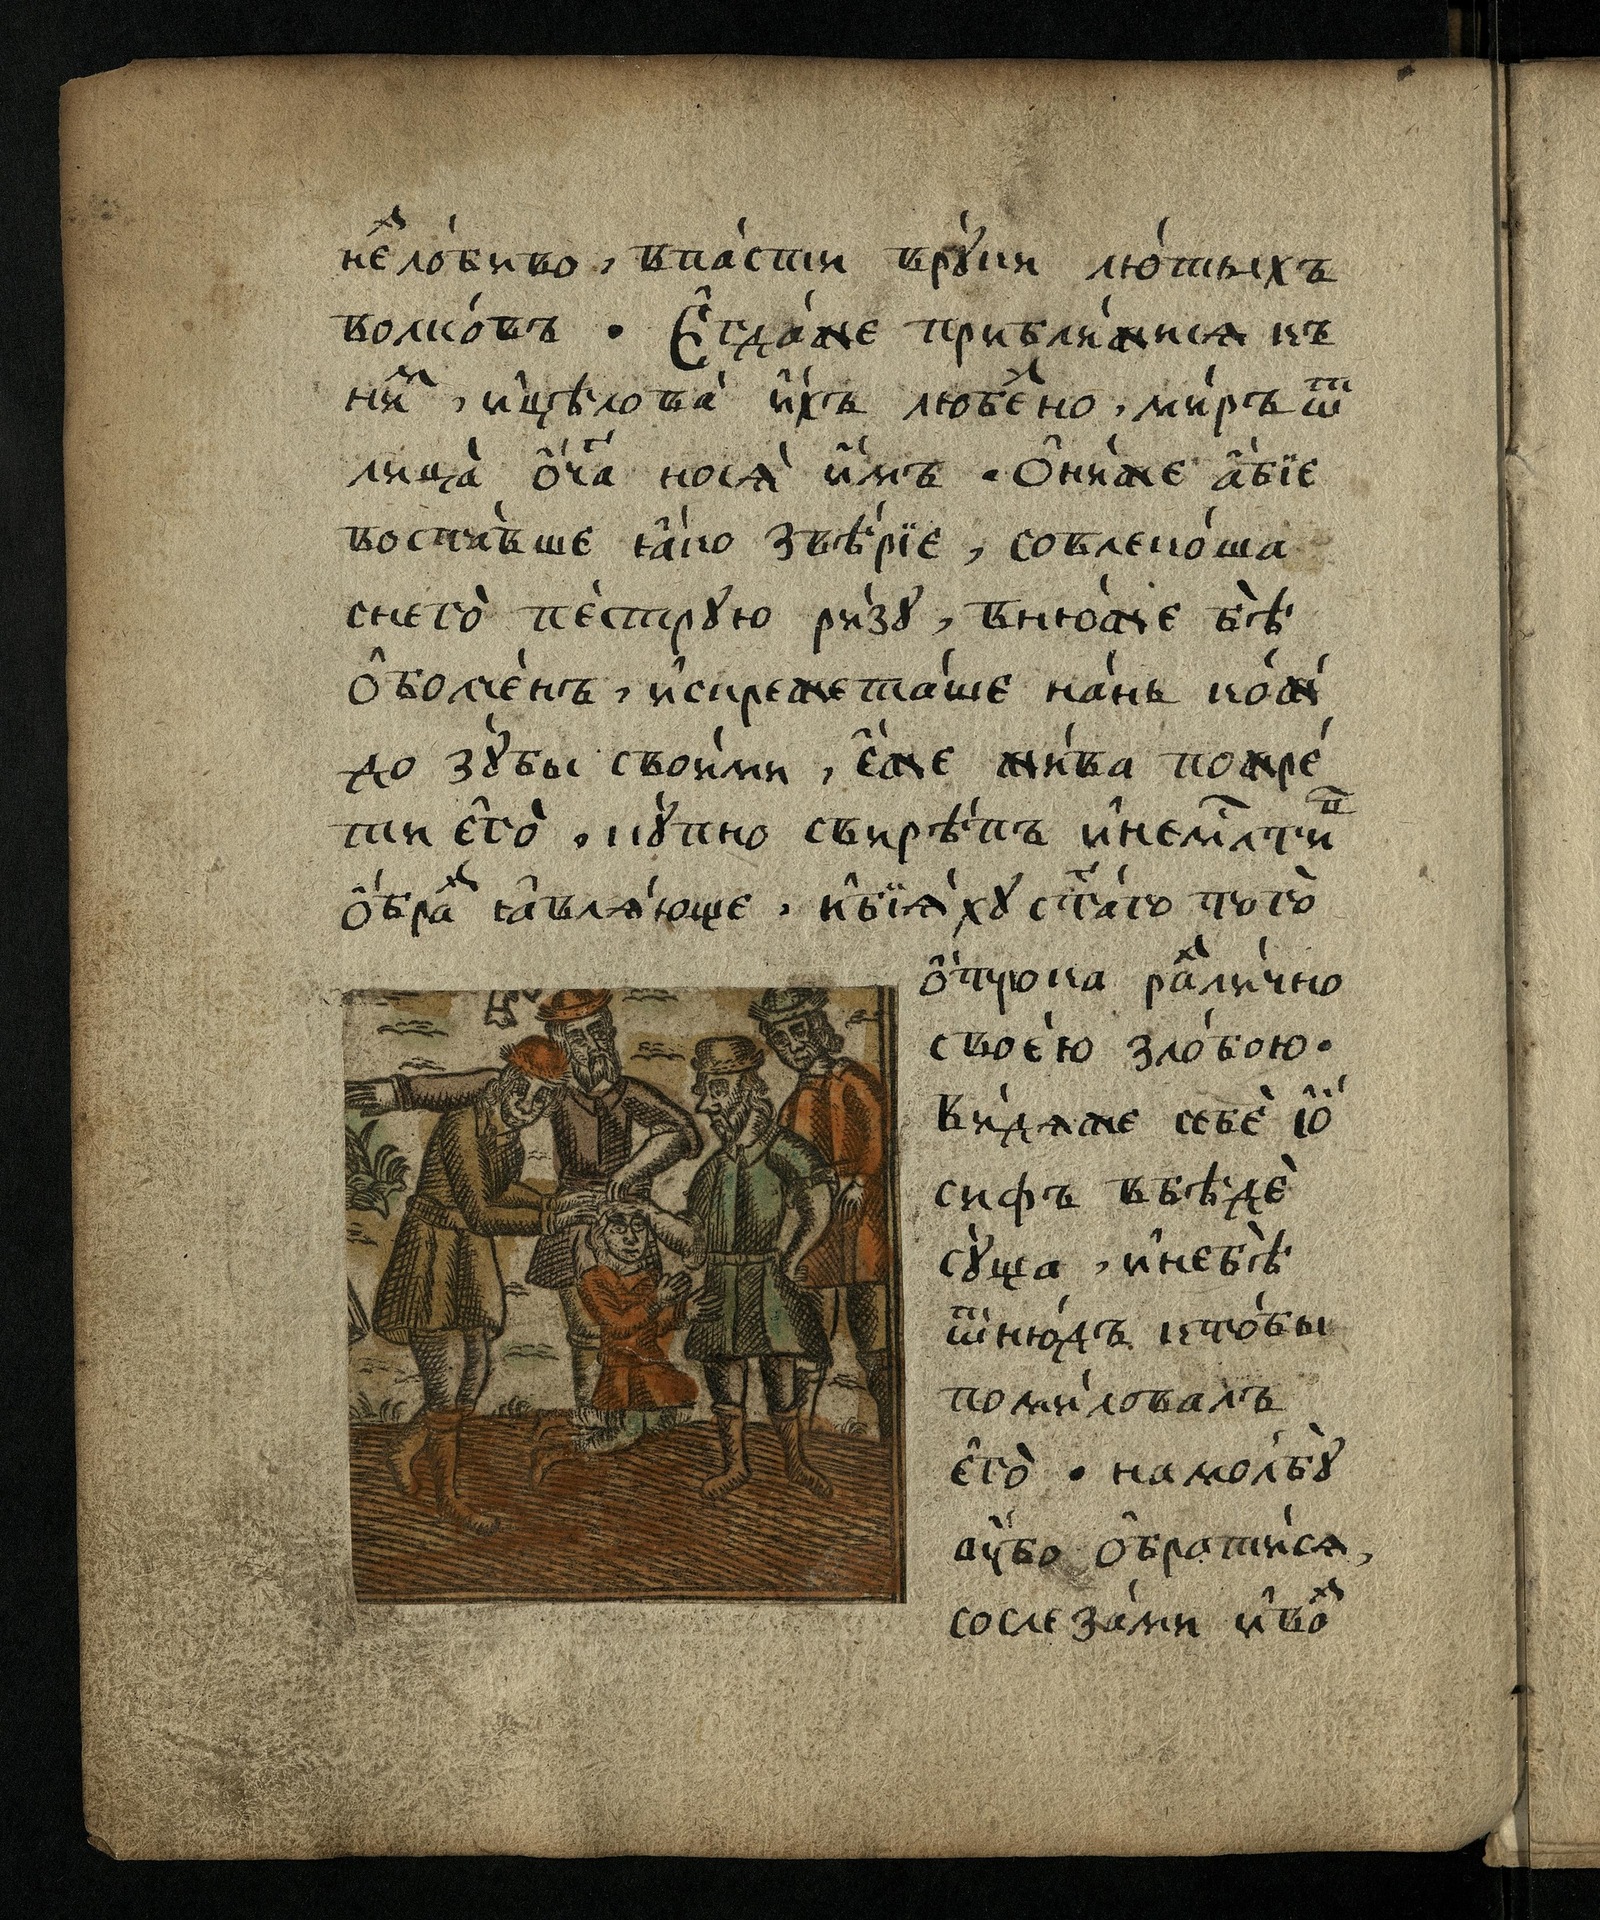 не́ⷥло́биво, впа́сти врꙋ́ци лю́тыхъ
волко́въ . Є҆гда́же прибли́жися къ
ни́ⷨ, и҆цѣлова̀ и҆́хъ любе́ⷥно, ми́ръ ѿ
лица̀ ѻ҆́ча нося̀ и҆̀мъ . Ѻ҆ни́же а҆́бїе
воста́вше ꙗ҆́ко ꙁвѣ́рїе, совлеко́ша
снего̀ пе́струю ри́ꙁꙋ, вню́же бѣ̀
ѻ҆болче́нъ, и҆скрежета́ше на́нь ко́ж
до ꙁꙋбы свои́ми, є҆́же жи́ва пожре́
ти є҆го̀ . кꙋ́пно свирѣ́пъ и҆неми́лтиⷡ҇
ѻ҆́браⷥ ꙗ҆вля́юще, и҆бїя́хꙋ ст҃а́го того̀
ѻ҆́трока раⷥли́чно
свое́ю ꙁло́бою.
Ви́дяже себѐ іѻ҆́
сифъ вбѣдѐ
сꙋ́ща, и҆небѣ̀
ѿню́дъ кто́бы
поми́ловалъ
є҆го̀ . намолбꙋ̀
ᲂу҆́бо ѻ҆брати́ся,
сослеꙁа́ми и҆воⷥ